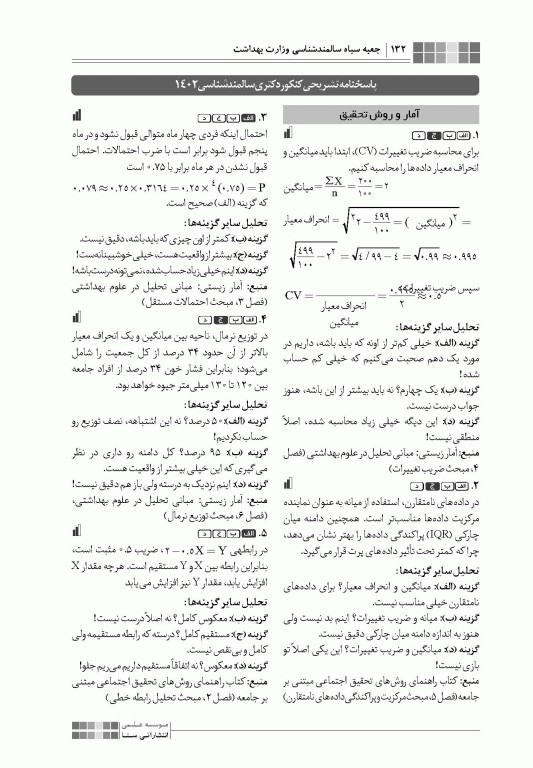 ۱۳۲ | جعبه سیاه سالمندشناسی وزارت بهداشت
پاسخنامه تشریحی کنکور دکتری سالمندشناسی ۱۴۰۲
آمار و روش تحقیق
۱. الف ب ج د
برای محاسبه ضریب تغییرات (CV)، ابتدا باید میانگین و
انحراف معیار داده‌ها را محاسبه کنیم.
میانگین = ΣX / n = ۲۰۰ / ۱۰۰ = ۲
انحراف معیار = √۲۲ − ۴۹۹ / ۱۰۰ = ( میانگین )۲ =
√۴۹۹ / ۱۰۰ − ۲۲ = √۴ / ۹۹ − ۴ = √۰.۹۹ ≈ ۰.۹۹۵
سپس ضریب تغییرات:
CV = انحراف معیار / میانگین = ۰.۹۹۵ / ۲ ≈ ۰.۵
تحلیل سایر گزینه‌ها:
گزینه (الف): خیلی کم‌تر از اونه که باید باشه، داریم در
مورد یک دهم صحبت می‌کنیم که خیلی کم حساب
شده!
گزینه (ب): یک چهارم؟ نه باید بیشتر از این باشه، هنوز
جواب درست نیست.
گزینه (د): این دیگه خیلی زیاد محاسبه شده، اصلاً
منطقی نیست!
منبع: آمار زیستی: مبانی تحلیل در علوم بهداشتی (فصل
۴، مبحث ضریب تغییرات)
۲. الف ب ج د
در داده‌های نامتقارن، استفاده از میانه به عنوان نماینده
مرکزیت داده‌ها مناسب‌تر است. همچنین دامنه میان
چارکی (IQR) پراکندگی داده‌ها را بهتر نشان می‌دهد،
چرا که کمتر تحت تأثیر داده‌های پرت قرار می‌گیرد.
تحلیل سایر گزینه‌ها:
گزینه (الف): میانگین و انحراف معیار؟ برای داده‌های
نامتقارن خیلی مناسب نیست.
گزینه (ب): میانه و ضریب تغییرات؟ اینم بد نیست ولی
هنوز به اندازه دامنه میان چارکی دقیق نیست.
گزینه (د): میانگین و ضریب تغییرات؟ این یکی اصلاً تو
بازی نیست!
منبع: کتاب راهنمای روش‌های تحقیق اجتماعی مبتنی بر
جامعه (فصل ۵، مبحث مرکزیت و پراکندگی داده‌های نامتقارن)
۳. الف ب ج د
احتمال اینکه فردی چهار ماه متوالی قبول نشود و در ماه
پنجم قبول شود برابر است با ضرب احتمالات. احتمال
قبول نشدن در هر ماه برابر با ۰.۷۵ است
۰.۰۷۹ ≈ ۰.۲۵ × ۰.۳۱۶۴ = ۰.۲۵ × ۴(۰.۷۵) = P
که گزینه (الف) صحیح است.
تحلیل سایر گزینه‌ها:
گزینه (ب): کمتر از اون چیزی که باید باشه، دقیق نیست.
گزینه (ج): بیشتر از واقعیت هست، خیلی خوشبینانه‌ست!
گزینه (د): اینم خیلی زیاد حساب شده، نمی‌تونه درست باشه!
منبع: آمار زیستی: مبانی تحلیل در علوم بهداشتی
(فصل ۳، مبحث احتمالات مستقل)
۴. الف ب ج د
در توزیع نرمال، ناحیه بین میانگین و یک انحراف معیار
بالاتر از آن حدود ۳۴ درصد از کل جمعیت را شامل
می‌شود؛ بنابراین فشار خون ۳۴ درصد از افراد جامعه
بین ۱۲۰ تا ۱۳۰ میلی‌متر جیوه خواهد بود.
تحلیل سایر گزینه‌ها:
گزینه (الف): ۵۰ درصد؟ نه این اشتباهه، نصف توزیع رو
حساب نکردیم!
گزینه (ب): ۹۵ درصد؟ کل دامنه رو داری در نظر
می گیری که این خیلی بیشتر از واقعیت هست.
گزینه (د): اینم نزدیک به درسته ولی باز هم دقیق نیست!
منبع: آمار زیستی: مبانی تحلیل در علوم بهداشتی،
(فصل ۶، مبحث توزیع نرمال)
۵. الف ب ج د
در رابطهی ۲ - ۰.۵X = Y، ضریب ۰.۵ مثبت است،
بنابراین رابطه بین X و Y مستقیم است. هرچه مقدار X
افزایش یابد، مقدار Y نیز افزایش می‌یابد
تحلیل سایر گزینه‌ها:
گزینه (ب): معکوس کامل؟ نه اصلاً درست نیست!
گزینه (ج): مستقیم کامل؟ درسته که رابطه مستقیمه ولی
کامل و بی‌نقص نیست.
گزینه (د): معکوس؟ نه اتفاقاً مستقیم داریم می‌ریم جلو!
منبع: کتاب راهنمای روش‌های تحقیق اجتماعی مبتنی
بر جامعه (فصل ۲، مبحث تحلیل رابطه خطی)
موسسه علمی
انتشاراتی سنا